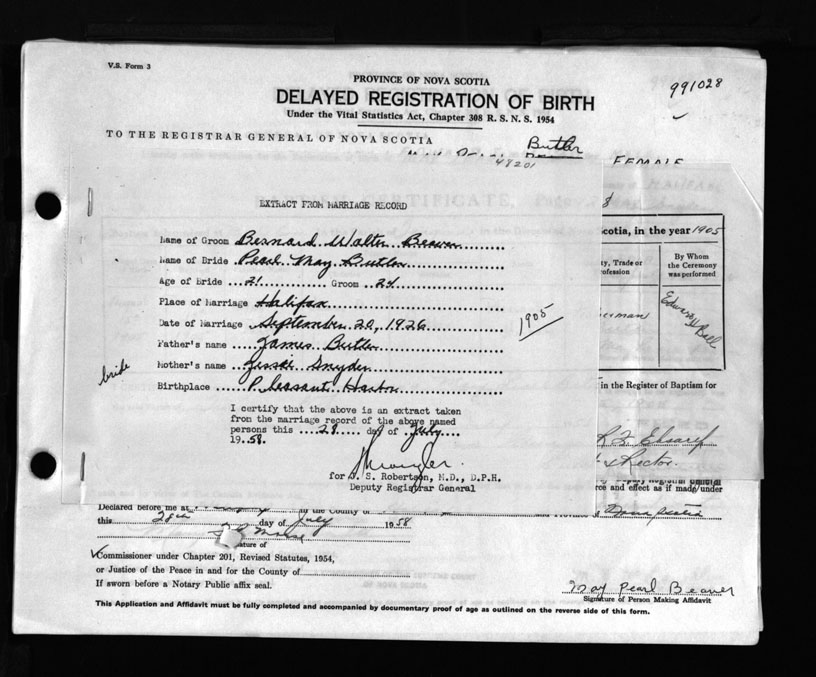 V.S. Form 3
PROVINCE OF NOVA SCOTIA
991028
DELAYED REGISTRATION OF BIRTH
Under the Vital Statistics Act, Chapter 308 R. S. N. S. 1954
TO THE REGISTRAR GENERAL OF NOVA SCOTIA
Butler
48201
FEMALE
EXTRACT FROM MARRIAGE RECORD
Name of Groom Bernard Walter Beaver
Name of Bride Pearl May Butler
Age of Bride ...21............. Groom ..24
Place of Marriage Halifax
Date of Marriage September 20, 1926
1905
Father's name James Butler
bride
Mother's name Jessie Snyder
Birthplace Pleasant Harbor
I certify that the above is an extract taken
from the marriage record of the above named
persons this ...28.... day of ..July....
19.58.
for J. S. Robertson, M.D., D.P.H.
Deputy Registrar General
Scotia, in the year 1905
ty, Trade or
ofession
By Whom
the Ceremony
was performed
erman
Edward H Ball
in the Register of Baptism for
Rector.
Deputy Registrar General
rce and effect as if made under
Declared before me at in the County of
this 28th day of July 1958
ature of
Commissioner under Chapter 201, Revised Statutes, 1954,
or Justice of the Peace in and for the County of
If sworn before a Notary Public affix seal.
May Pearl Beaver
Signature of Person Making Affidavit
This Application and Affidavit must be fully completed and accompanied by documentary proof of age as outlined on the reverse side of this form.